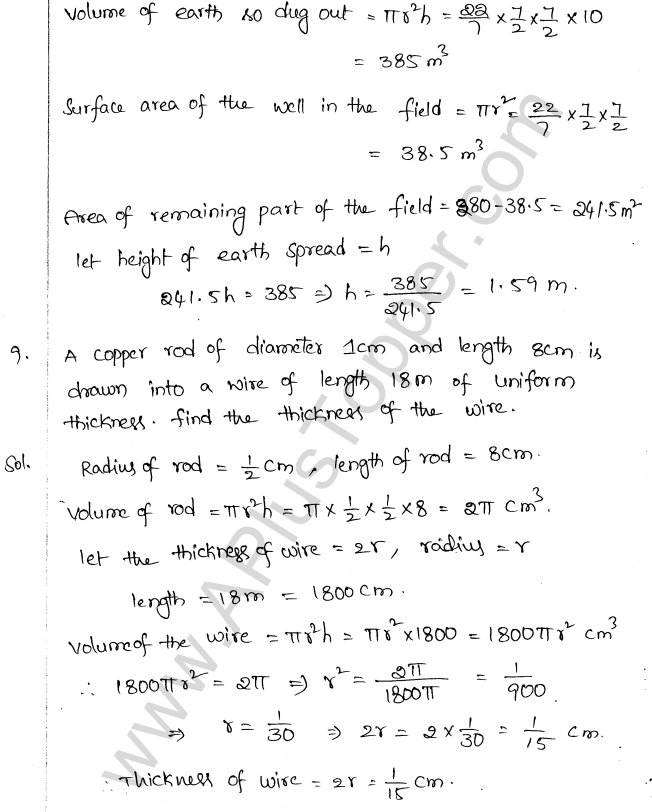 Volume of earth so dug out = πr²h = 22/7 × 7/2 × 7/2 × 10
= 385 m³
Surface area of the well in the field = πr² = 22/7 × 7/2 × 7/2
= 38.5 m³
Area of remaining part of the field = 280 - 38.5 = 241.5 m²
let height of earth spread = h
241.5h = 385 ⇒ h = 385/241.5 = 1.59 m.
9. A copper rod of diameter 1cm and length 8cm is
drawn into a wire of length 18m of uniform
thickness. find the thickness of the wire.
Sol. Radius of rod = 1/2 cm, length of rod = 8cm.
Volume of rod = πr²h = π × 1/2 × 1/2 × 8 = 2π cm³.
let the thickness of wire = 2r, radius = r
length = 18m = 1800cm.
Volume of the wire = πr²h = πr² × 1800 = 1800πr² cm³
∴ 1800πr² = 2π ⇒ r² = 2π/1800π = 1/900.
⇒ r = 1/30 ⇒ 2r = 2 × 1/30 = 1/15 cm.
∴ Thickness of wire = 2r = 1/15 cm.
www.APlusTopper.com